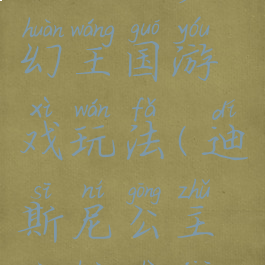 huàn wáng guó yóu
幻王国游
xì wán fǎ dí
戏玩法(迪
sī ní gōng zhǔ
斯尼公主